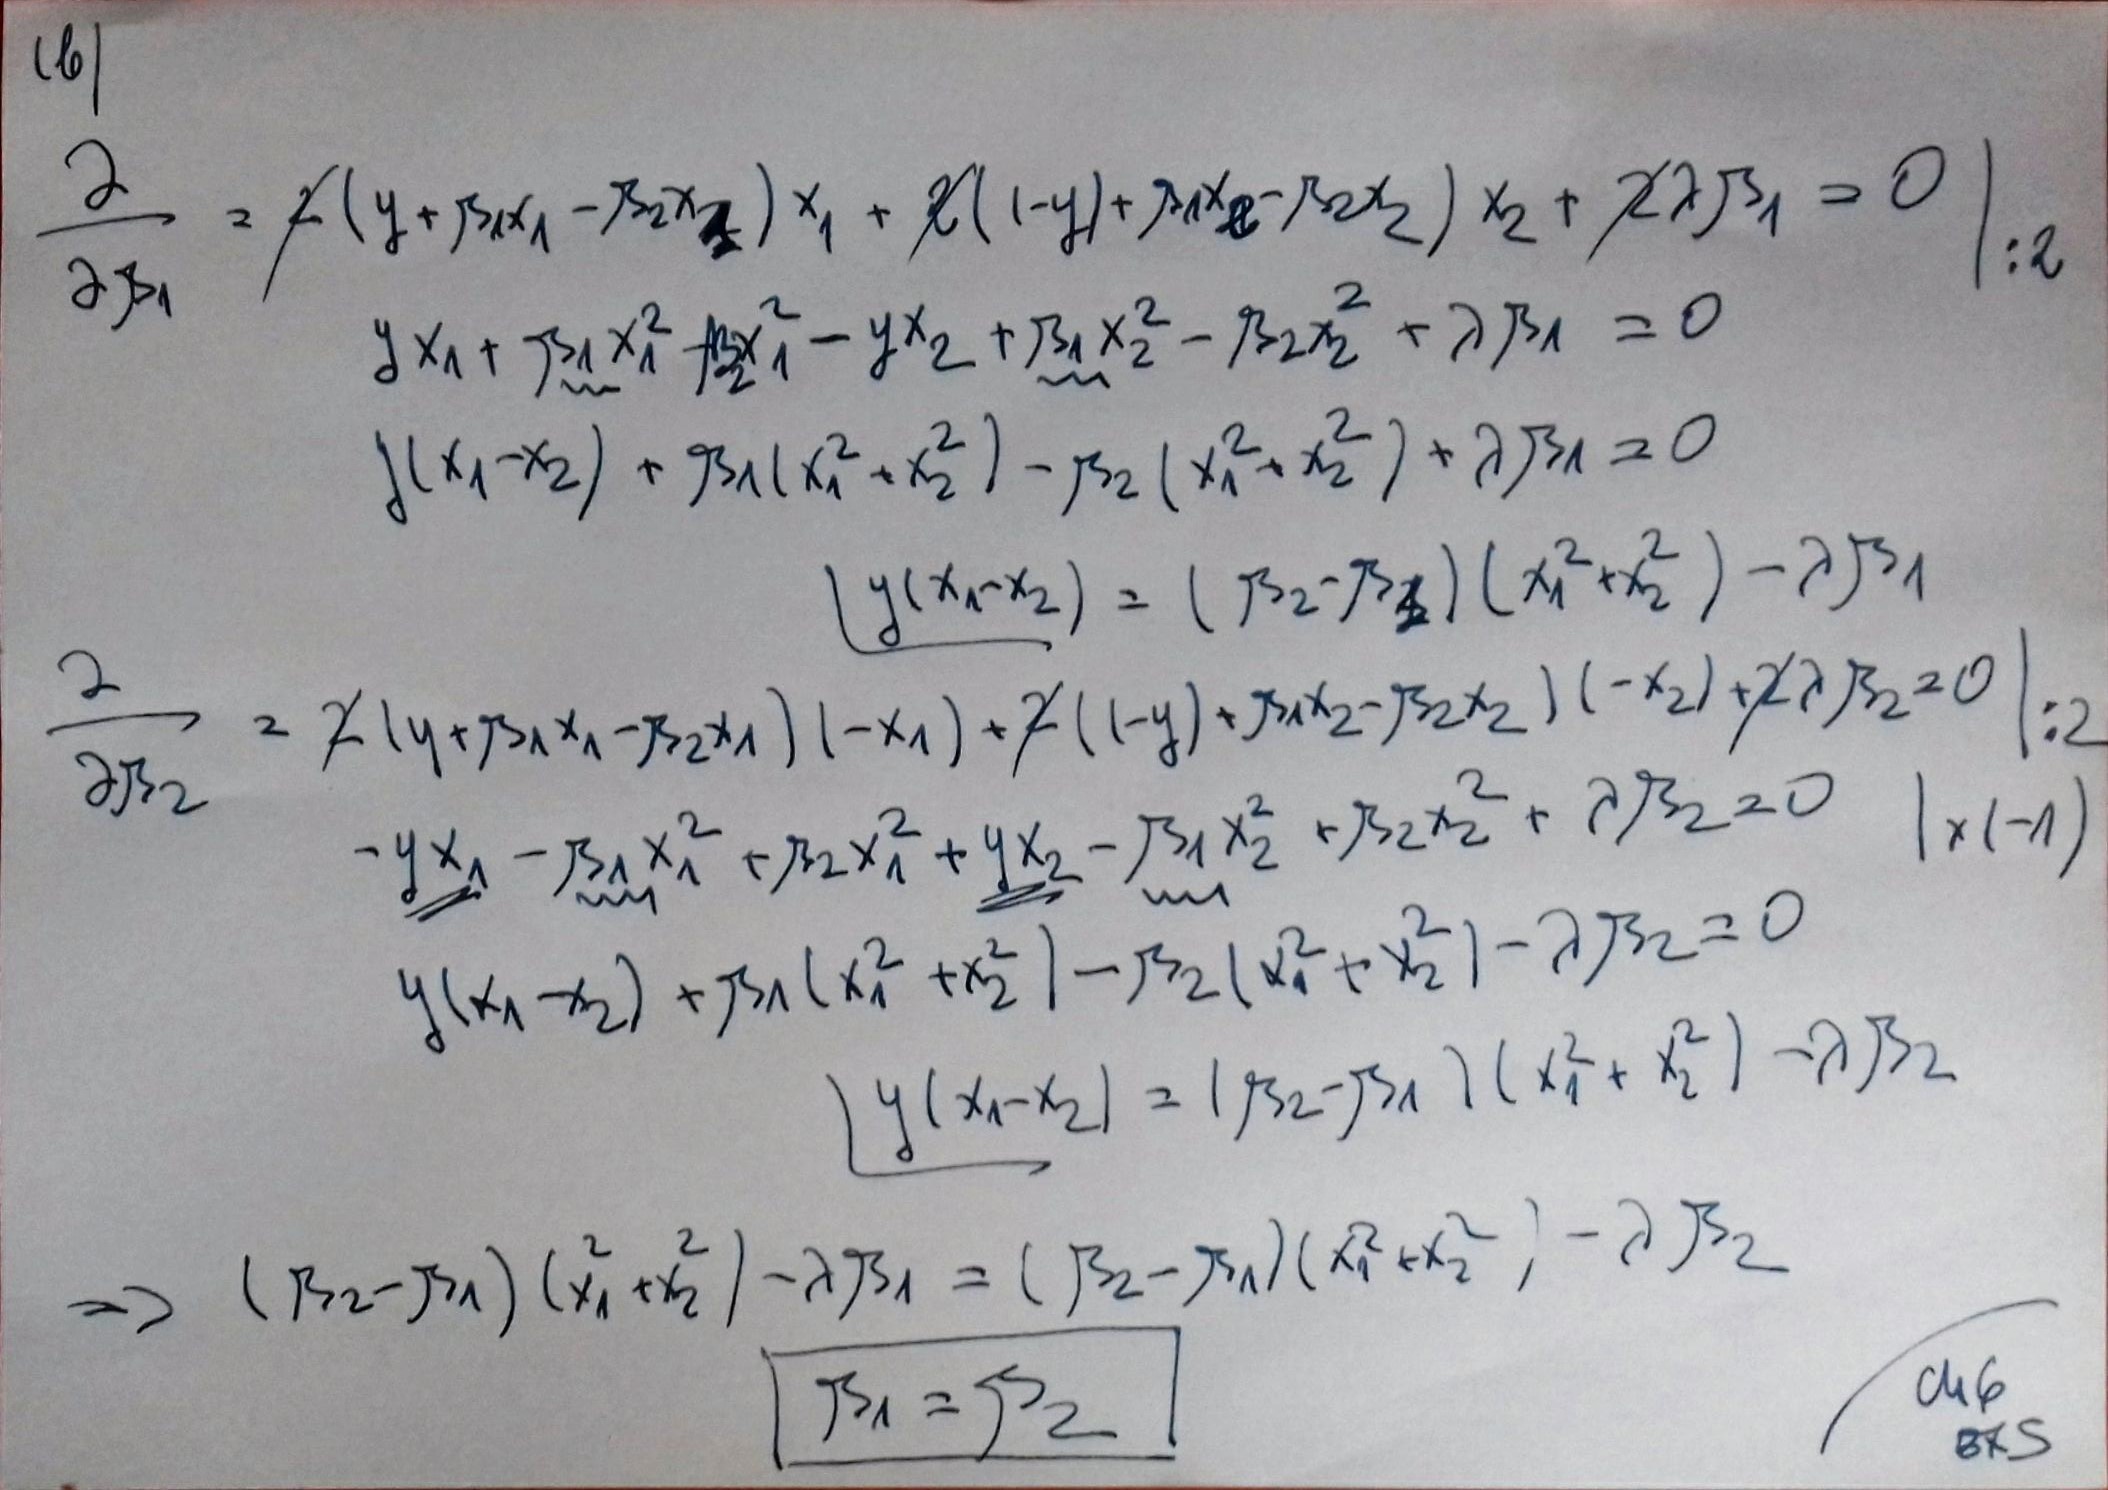 (b)
∂/∂β₁ = 2(y + β₁x₁ - β₂x₁)x₁ + 2((-y) + β₁x₂ - β₂x₂)x₂ + 2λβ₁ = 0 | :2
yx₁ + β₁x₁² - β₂x₁² - yx₂ + β₁x₂² - β₂x₂² + λβ₁ = 0
y(x₁-x₂) + β₁(x₁² + x₂²) - β₂(x₁² + x₂²) + λβ₁ = 0
y(x₁-x₂) = (β₂-β₁)(x₁² + x₂²) - λβ₁
∂/∂β₂ = 2(y + β₁x₁ - β₂x₁)(-x₁) + 2((-y) + β₁x₂ - β₂x₂)(-x₂) + 2λβ₂ = 0 | :2
-yx₁ - β₁x₁² + β₂x₁² + yx₂ - β₁x₂² + β₂x₂² + λβ₂ = 0 | x(-1)
y(x₁-x₂) + β₁(x₁² + x₂²) - β₂(x₁² + x₂²) - λβ₂ = 0
y(x₁-x₂) = (β₂-β₁)(x₁² + x₂²) - λβ₂
=> (β₂-β₁)(x₁² + x₂²) - λβ₁ = (β₂-β₁)(x₁² + x₂²) - λβ₂
β₁ = β₂
ch6
ex5